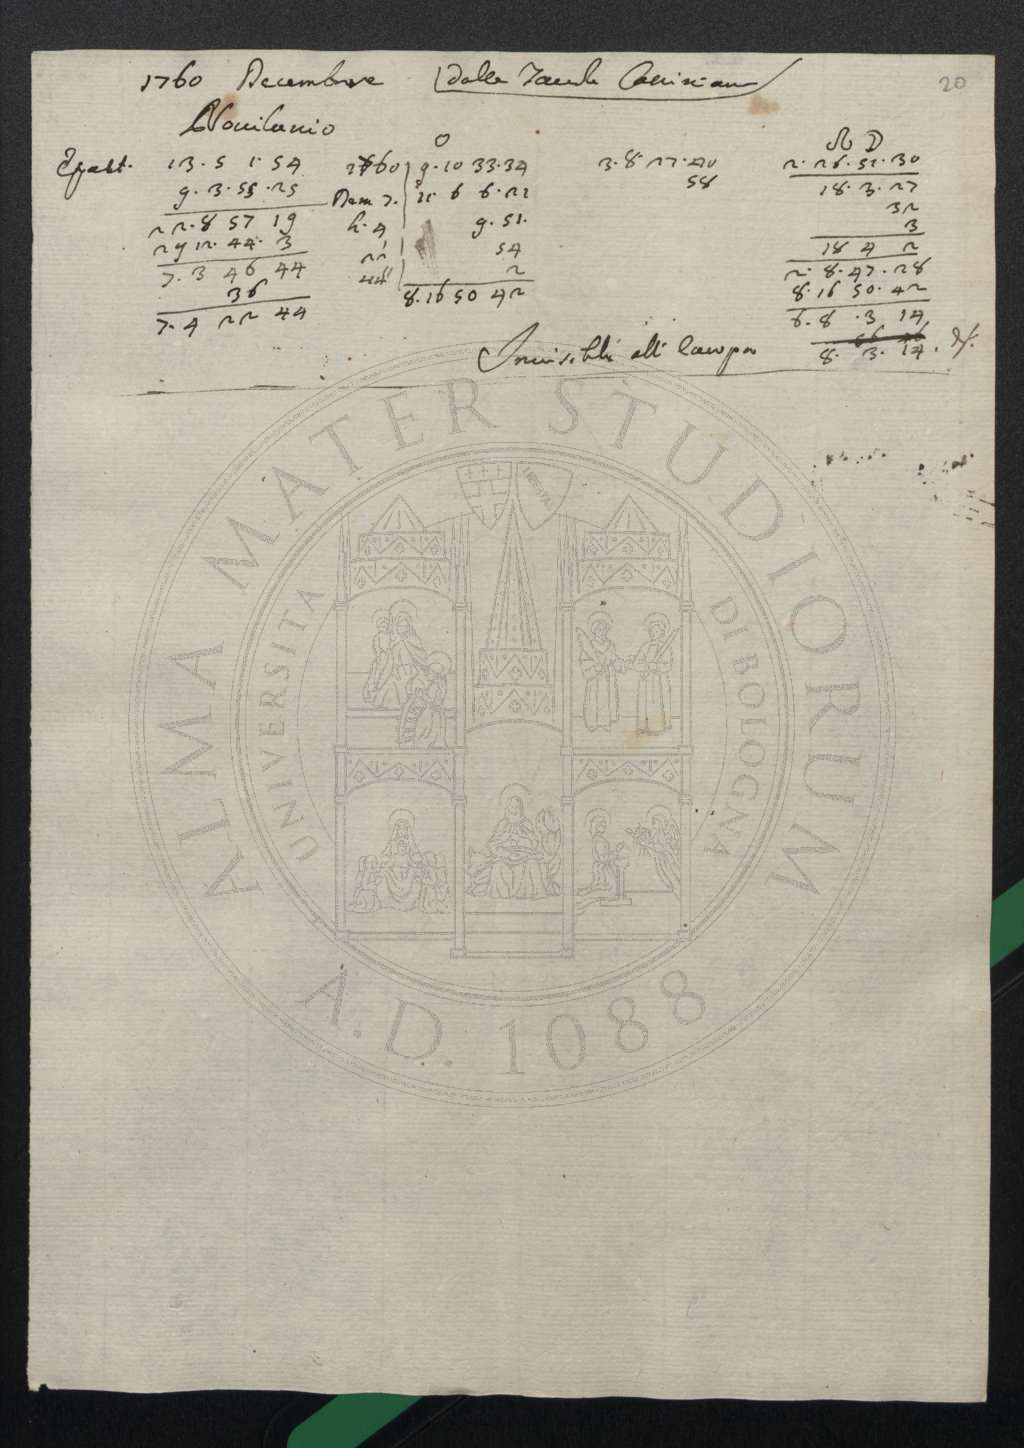 1760 Decembre (Dalle Tavole Cassiniane)
20
Novilunio
Epatt. 13. 5 1. 54
9. 3. 55. 25
22. 8 57 19
29 12. 44. 3
7. 3 46 44
36
7. 4 22 44
1760 9. 10 33. 34
7. 11. 6 6. 22
h. 4 9. 51.
22' 54
44" 2
8. 16 50 42
3. 8. 27. 40
58
☊ D
2. 26. 51. 30
18. 3. 27
32
3
18 4 2
2. 8. 47. 28
8. 16 50. 42
6. 8. 3 14
8. 3. 14.
Invisibile all'
ALMA MATER STUDIORUM
UNIVERSITA DI BOLOGNA
A.D. 1088